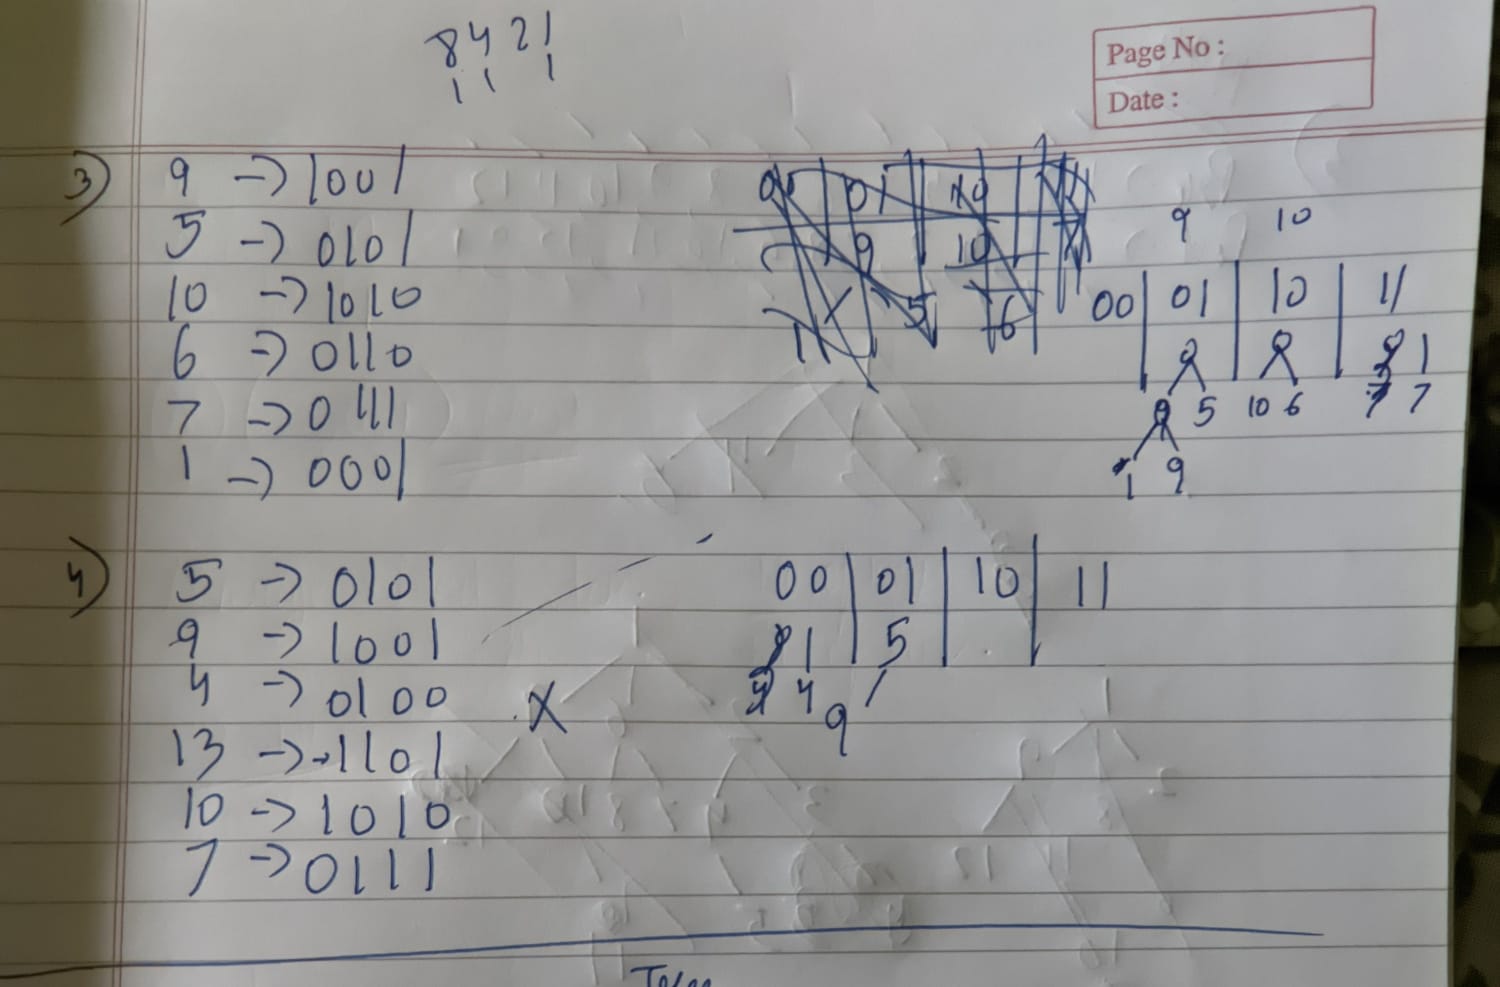 8 4 2 1
1 1 1
Page No :
Date :
3) 9 -> 1001
5 -> 0101
10 -> 1010
6 -> 0110
7 -> 0111
1 -> 0001
01 10
9 10
5 6
9 10
00 | 01 | 10 | 11
1
5 10 6 7
1 9
4) 5 -> 0101
9 -> 1001
4 -> 0100
13 -> 1101
10 -> 1010
7 -> 0111
X
00 | 01 | 10 | 11
1 | 5
4
9